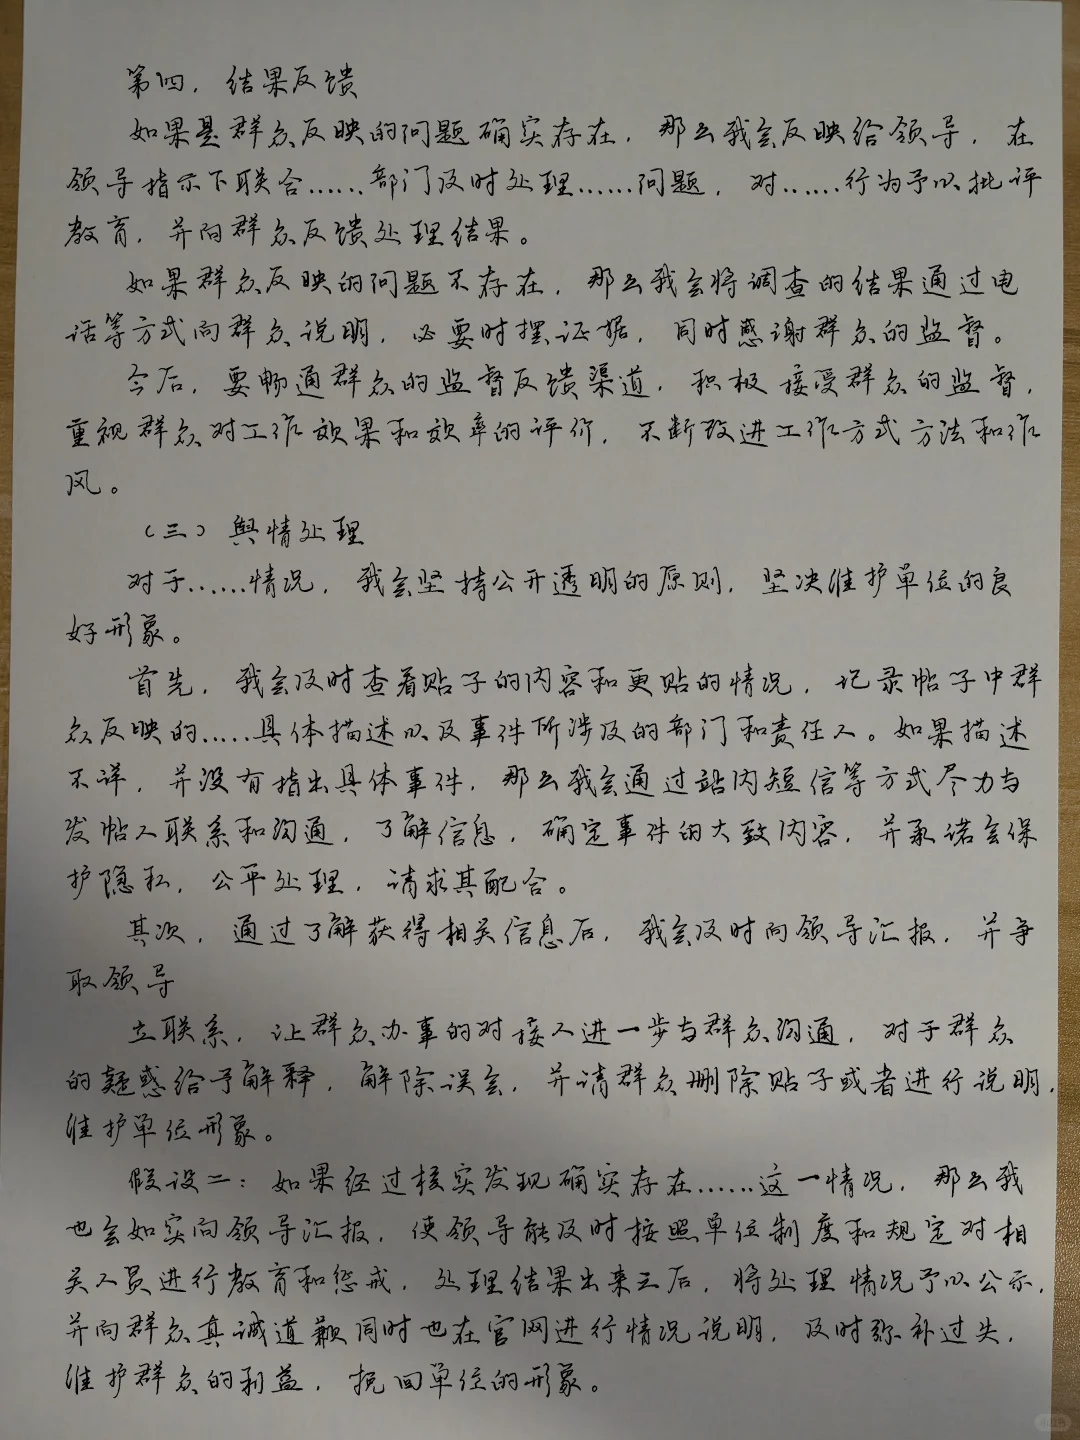 第四，结果反馈
如果是群众反映的问题确实存在，那么我会反映给领导，在
领导指示下联合……部门及时处理……问题，对……行为予以批评
教育，并向群众反馈处理结果。
如果群众反映的问题不存在，那么我会将调查的结果通过电
话等方式向群众说明，必要时摆证据，同时感谢群众的监督。
今后，要畅通群众的监督反馈渠道，积极接受群众的监督，
重视群众对工作效果和效率的评价，不断改进工作方式方法和作
风。
（三）舆情处理
对于……情况，我会坚持公开透明的原则，坚决维护单位的良
好形象。
首先，我会及时查看贴子的内容和更贴的情况，记录帖子中群
众反映的……具体描述以及事件所涉及的部门和责任人。如果描述
不详，并没有指出具体事件，那么我会通过站内短信等方式尽力与
发帖人联系和沟通，了解信息，确定事件的大致内容，并承诺会保
护隐私，公平处理，请求其配合。
其次，通过了解获得相关信息后，我会及时向领导汇报，并争
取领导
立联系，让群众办事的对接人进一步与群众沟通，对于群众
的疑惑给予解释，解除误会，并请群众删除贴子或者进行说明，
维护单位形象。
假设二：如果经过核实发现确实存在……这一情况，那么我
也会如实向领导汇报，使领导能及时按照单位制度和规定对相
关人员进行教育和惩戒，处理结果出来之后，将处理情况予以公示，
并向群众真诚道歉同时也在官网进行情况说明，及时弥补过失，
维护群众的利益，挽回单位的形象。
小红书